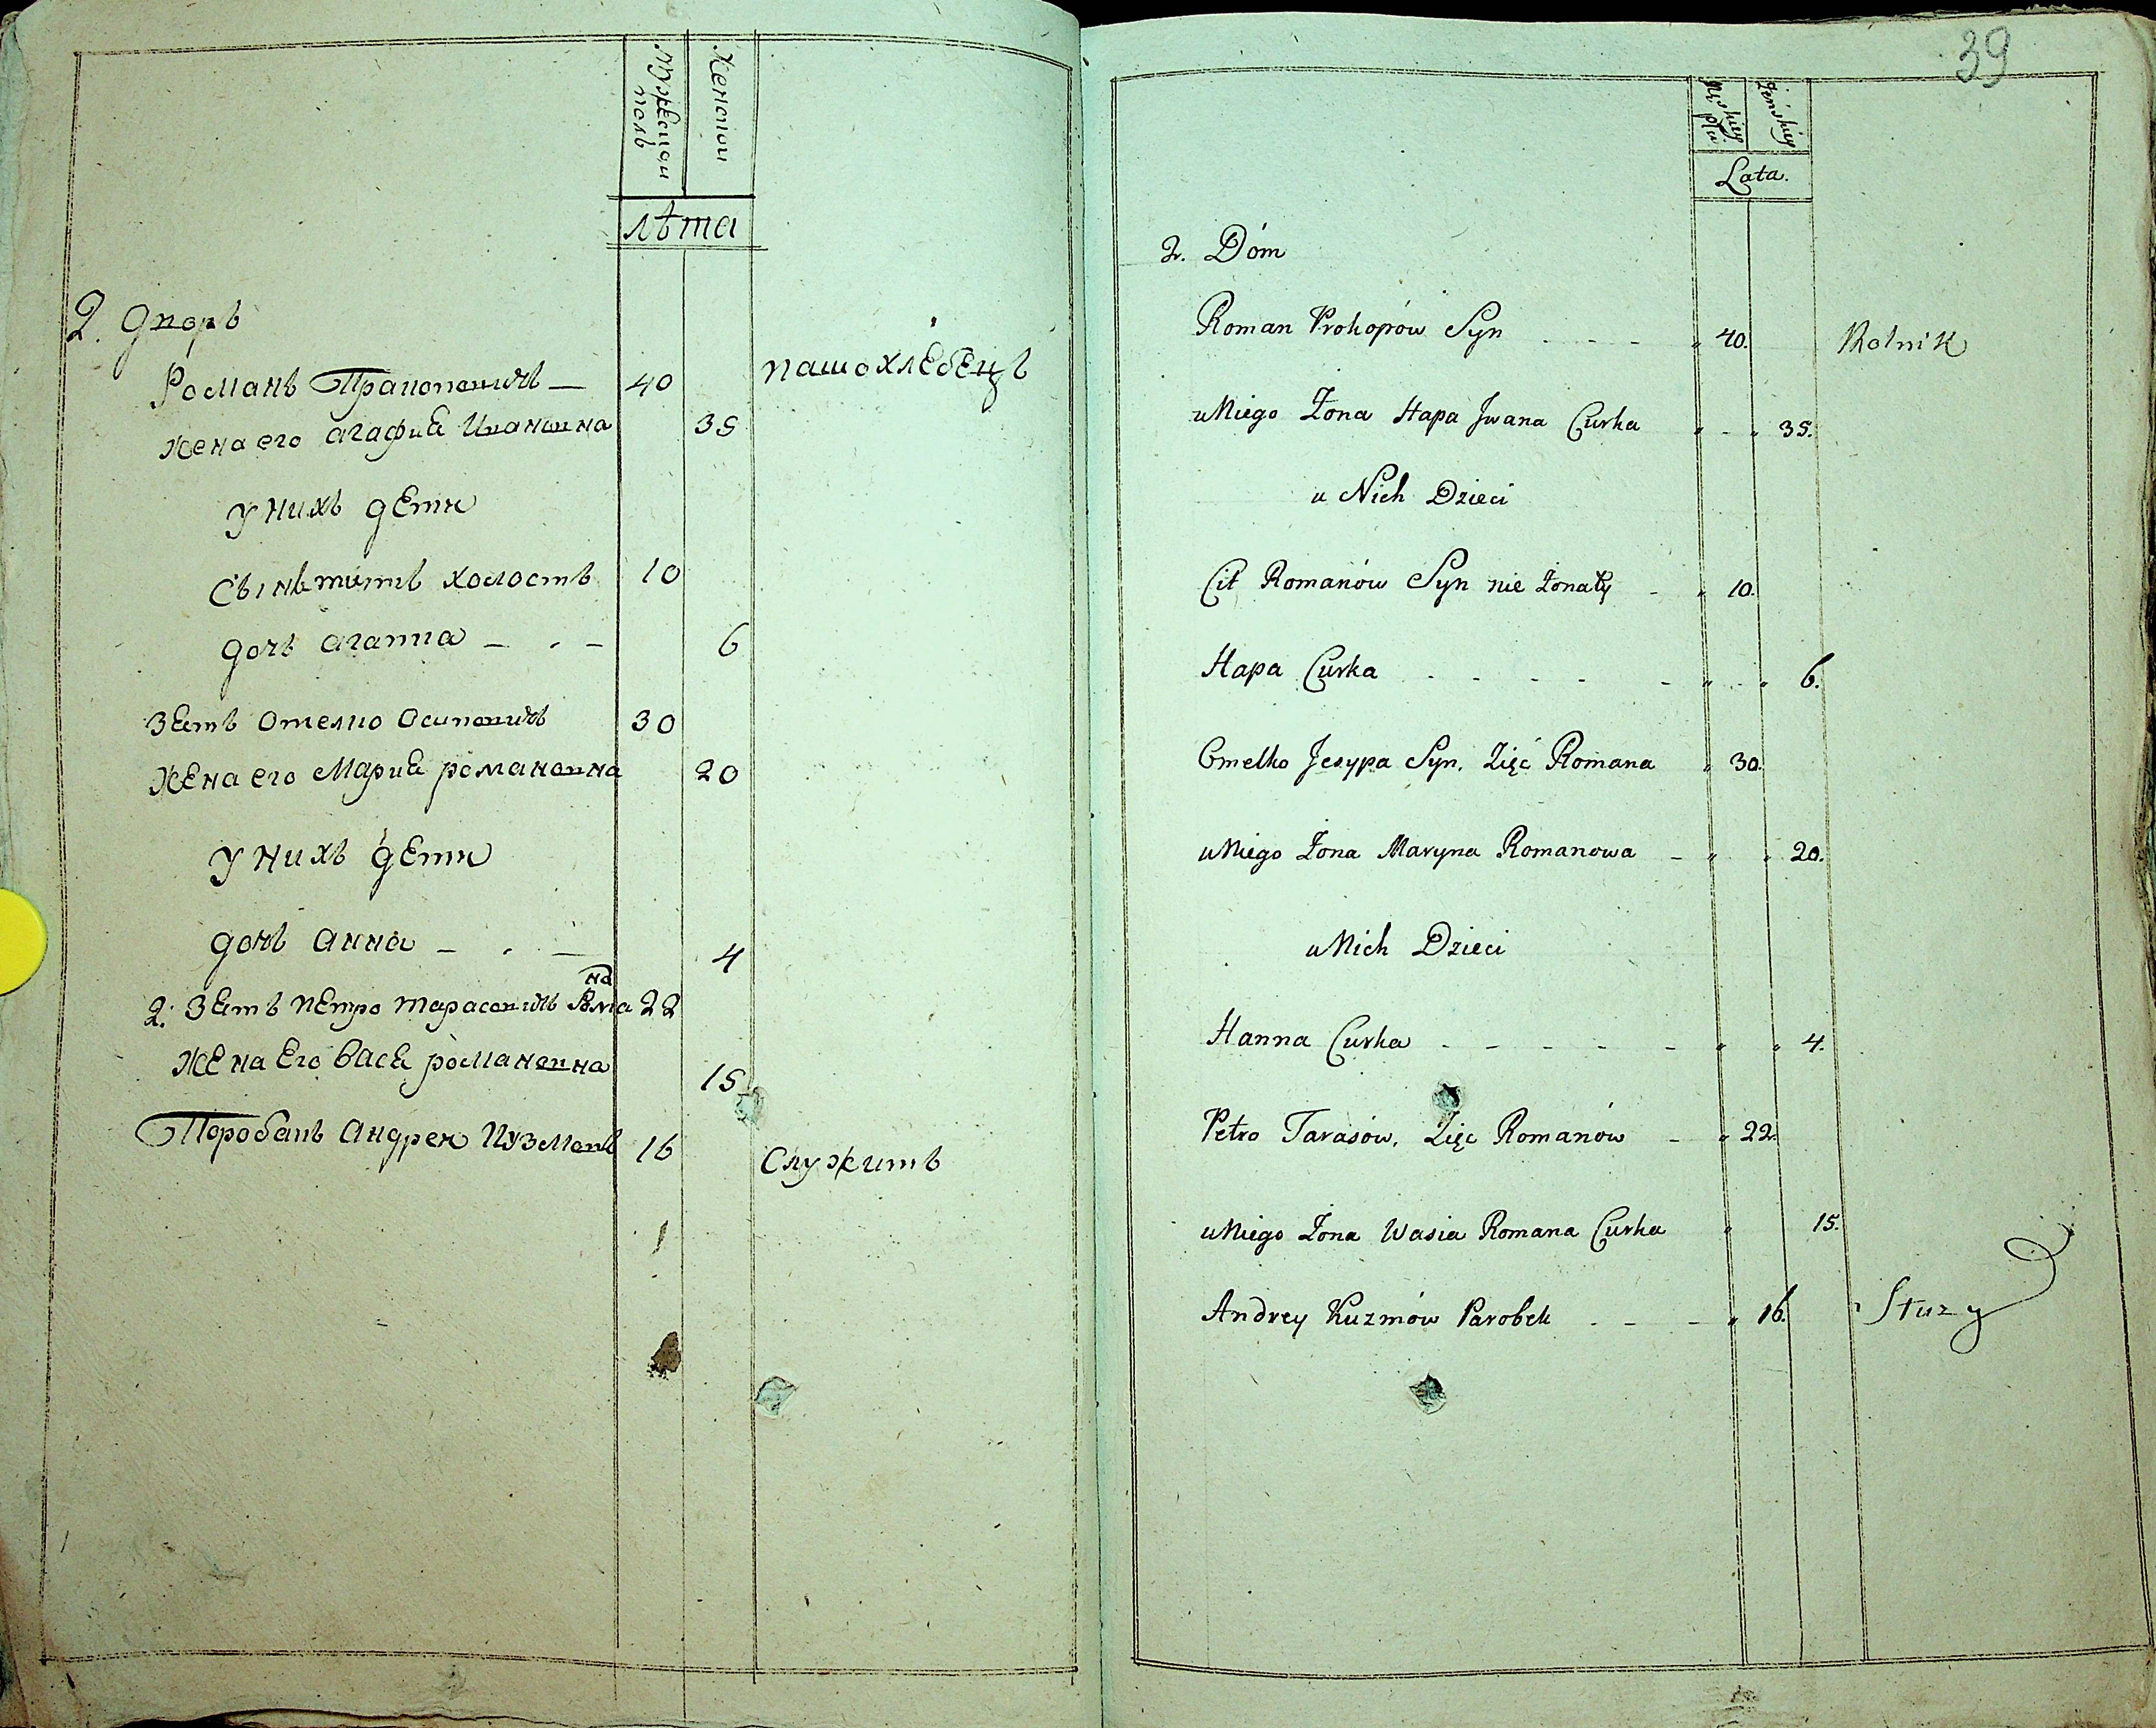 Мужескии полъ
Женскии
лѣта
2. дворъ
Романъ Прокоповичъ — 40 пашохлебецъ
жена его агафиа Ивановна 35
у нихъ дети
Сынъ титъ холостъ 10
дочь агапиа — . — 6
Зеть отелко Осиповичъ 30
Жена его Мариа романовна 20
у нихъ дети
дочь анна — . — 4
2. Зеть петро тарасовичъ Романа 22
жена его Васа романовна 15
Поробокъ андреи Кузмовъ 16 Служитъ
39
Męskiey płci
Żeńskiey
Lata.
2. Dóm
Roman Prokopów Syn - - - " 40. Rolnik
u Niego Żona Hapa Jwana Curka " - " 35.
u Nich Dzieci
Cit Romanów Syn nie żonaty - " 10.
Hapa Curka - - - - - " - " 6.
Omelko Jesypa Syn, Zięć Romana " 30.
u Niego Żona Maryna Romanowa - " " 20.
u Nich Dzieci
Hanna Curka - - - - - " " 4.
Petro Tarasów, Zięc Romanów - " 22.
u Niego Żona Wasia Romana Curka " 15.
Andrey Kuzmów Parobek - - - " 16. Służy